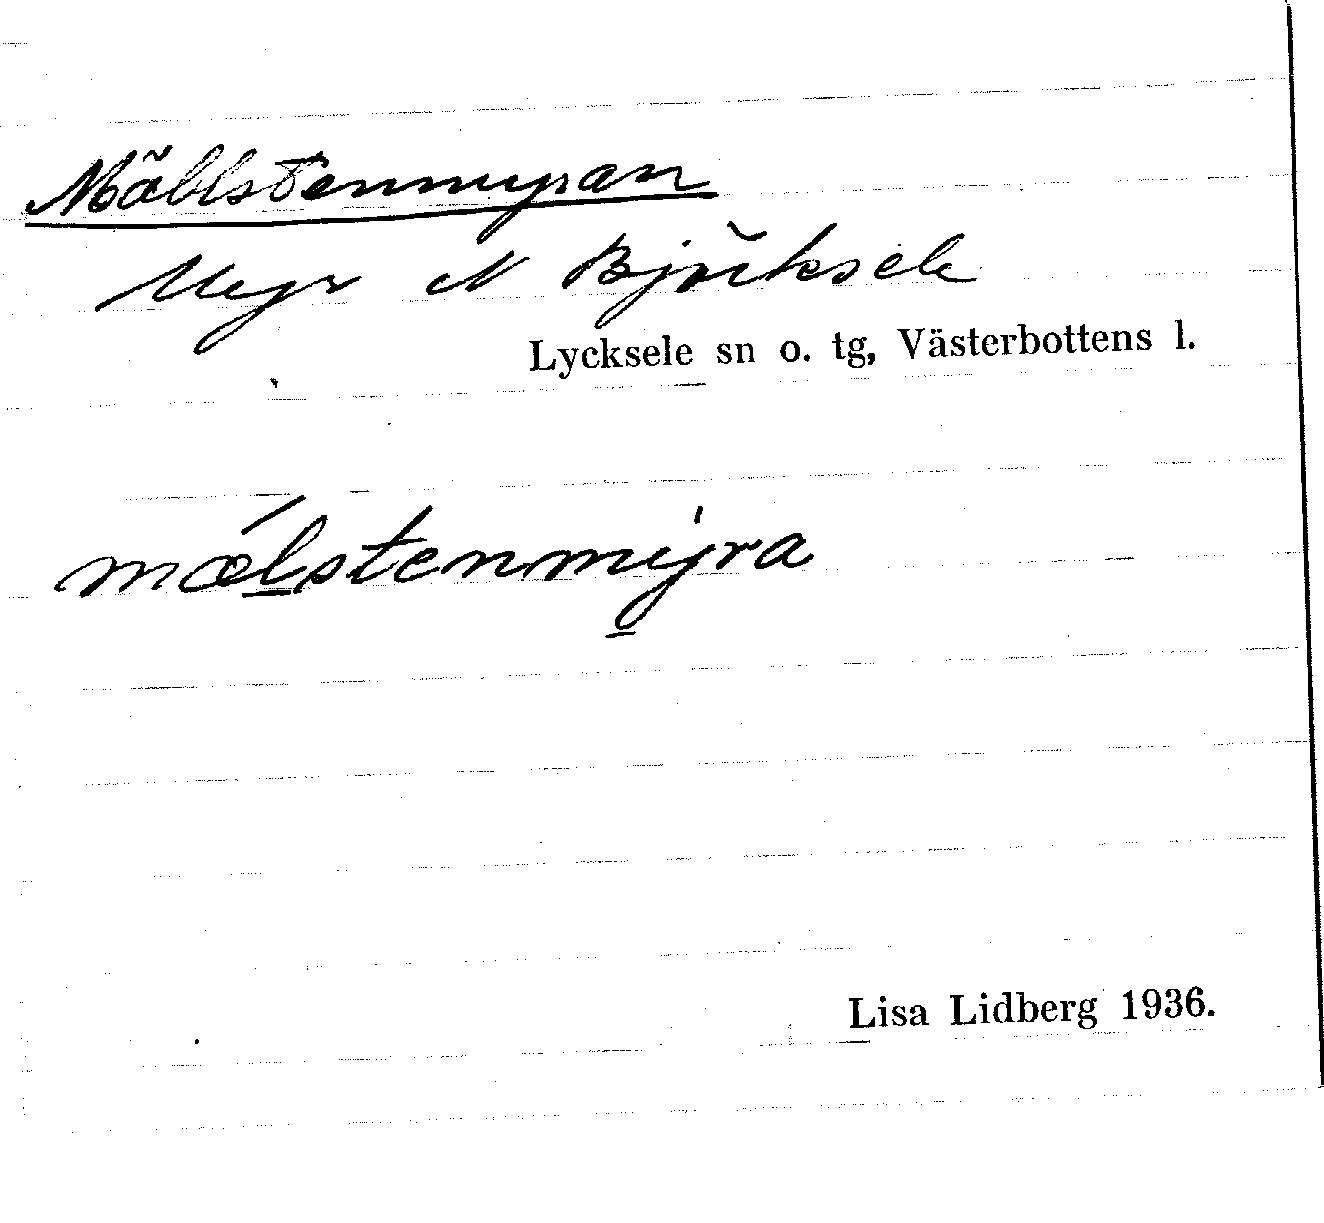 Mällstenmyran
Myr N Björksele
Lycksele sn o. tg, Västerbottens l.
mælstenmyra
Lisa Lidberg 1936.